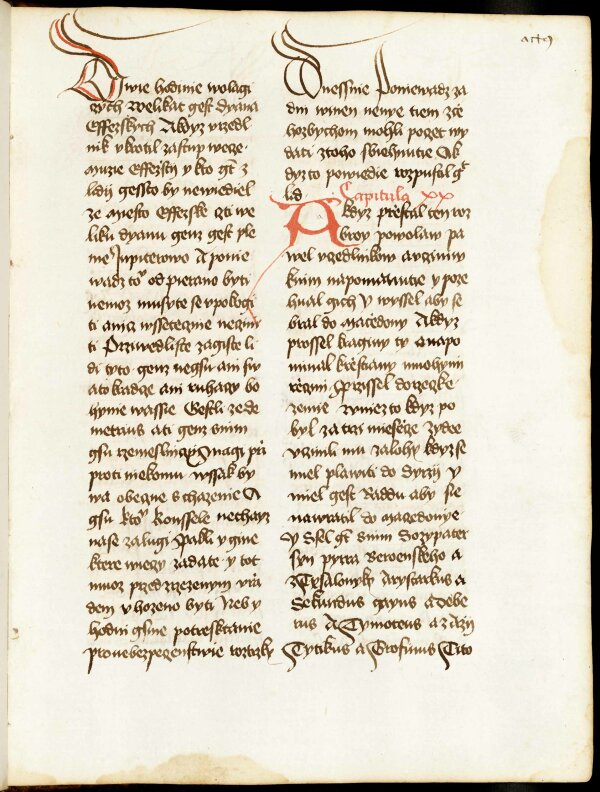 actꝯ
Dwie hodinie wolagi
cych welikat gest dyana
Effezskych A kdyz vrzedl
nik vkrotil zastup wece
muzie Effezsti y kto gt z
lidij gessto by newiediel
ze miesto Effezske cti we
liku dyanu genz gest ple
me Jupiterowo A ponie
wadz to od pierano byti
nemoz musyte se vpokogi
ti aniz wssetecznie neczin
ti Przywedliste zagiste li
di tyto genz negsu ani sw
atokradcze ani ruhagy bo
hynie wassie Gestli ze de
metrius a ti genz snim
gsu rzemeslniczy magi przi
proti niekomu wssak by
wa obecne schazenie A
gsu kto Konssele nechayz
nase zalugi Pakli y gine
ktere wieczy zadate y tot
muoz przed rzezenym vrzi
dem vhozeno byti Neb y
hodni gsme potresktanie
pro nebezpeczenstwie roztrzky
Dnessnie Poniewadz za
dny winen nenye tiem zce
hozbychom mohli poczet wy
dati ztoho sbiehnutie A k
dyz to powiedie rozpustil gt
lid Capitula xx
A kdyz przestal ten roz
broy powolaw pa
wel vczedlnikow a vcziniw
knim napomanutie y poze
hnal gich y wyssel aby se
bral do macedony A kdyz
prossel kraginy ty a napo
minal krzestiany mnohymi
rzeczmi Przissel do rzeczke
zemie Tu niez to kdyz po
byl za trzi miesicze zydee
vczinili mu zalohy kdyz se
miel plawiti do Syrzij y
miel gest Raddu aby sie
nawratil do macedonye
y Ssel gt snim Sozypater
syn pyrra Beroenskeho a
z Tysalonyky Arystarkus a
Sekundus gayus a debe
rus A Tymoteus a z azy
Tytikus a Trofimus Tito